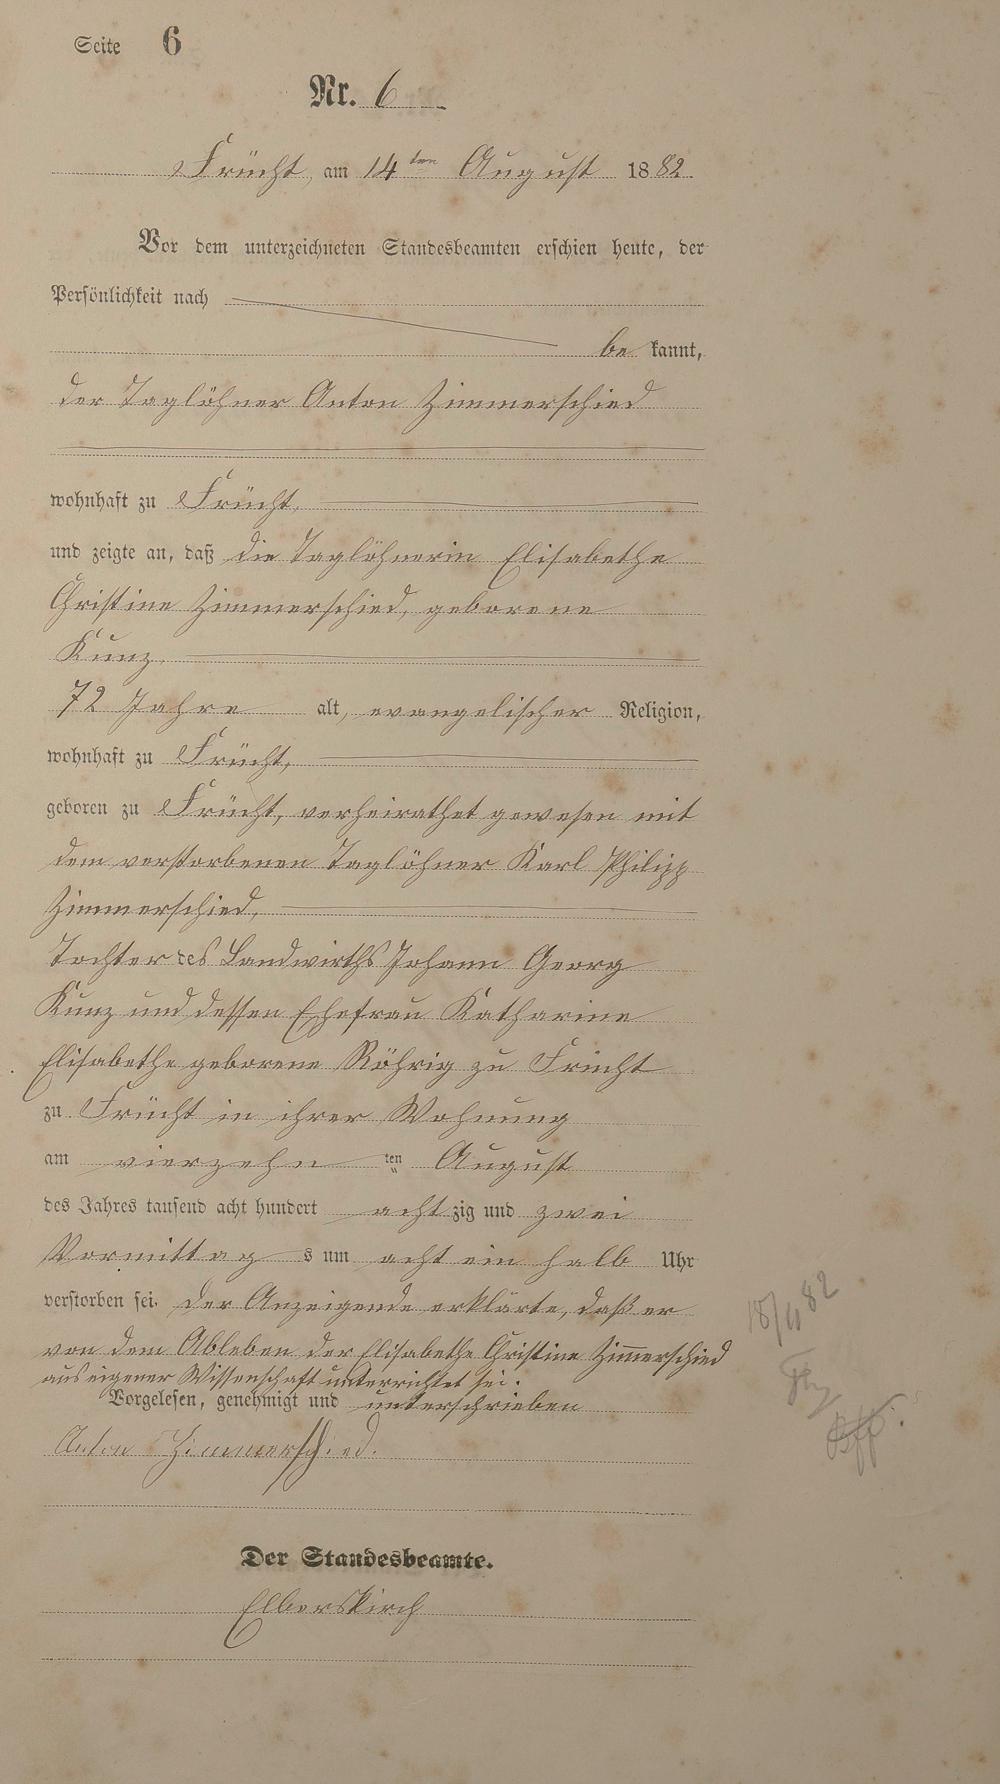 Seite 6
Nr. 6
Frücht, am 14ten August 1882.
Vor dem unterzeichneten Standesbeamten erschien heute, der
Persönlichkeit nach
be kannt,
der Taglöhner Anton Zimmerschied
wohnhaft zu Frücht,
und zeigte an, daß die Taglöhnerin Elisabethe
Christine Zimmerschied, geborene
Kunz,
72 Jahre alt, evangelischer Religion,
wohnhaft zu Frücht,
geboren zu Frücht, verheirathet gewesen mit
dem verstorbenen Taglöhner Karl Philipp
Zimmerschied,
Tochter des Landwirths Johann Georg
Kunz und dessen Ehefrau Katharine
Elisabethe geborene Röhrig zu Frücht
zu Frücht in ihrer Wohnung
am vierzehn ten August
des Jahres tausend acht hundert acht zig und zwei
Vormittag s um acht ein halb Uhr
verstorben sei. Der Anzeigende erklärte, daß er
von dem Ableben der Elisabethe Christine Zimmerschied
aus eigener Wissenschaft unterrichtet sei.
Vorgelesen, genehmigt und unterschrieben
Anton Zimmerschied.
Der Standesbeamte.
Elberskirch
18/11 82